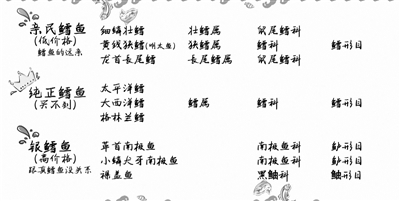 亲民鳕鱼 细鳞壮鳕 壮鳕属 鼠尾鳕科
(低价格) 黄线狭鳕(明太鱼) 狭鳕属 鳕科 鳕形目
鳕鱼的远亲 龙首長尾鳕 長尾鳕属 鼠尾鳕科
纯正鳕鱼 太平洋鳕
(买不到) 大西洋鳕 鳕属 鳕科 鳕形目
格林兰鳕
银鳕鱼 革首南极鱼 南极鱼科 鲈形目
(高价格) 小鳞犬牙南极鱼 南极鱼科 鲈形目
跟真鳕鱼没关系 裸盖鱼 黑鲉科 鲉形目